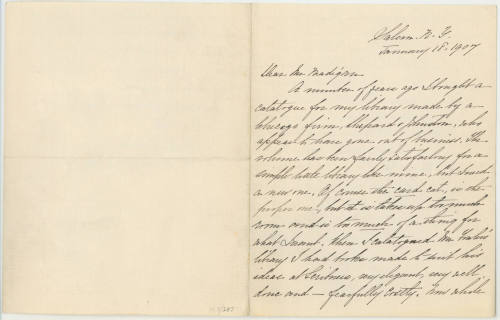 Salem N.Y.
January 18-1907
Dear Mr. Madigan
A number of years ago I bought a
catalogue for my library made by a
Chicago firm, Shepard & Johnston, who
appear to have gone out of business. The
volume has been fairly satisfactory for a
simple little library like mine, but I need
a new one. Of course the card cat. is the
proper one, but it takes up too much
room and is too much of a thing for
what I want. When I catalogued Mr
library I had books made to suit his
ideas at Scribners, very elegant, very well
done and — fearfully costly. One whole